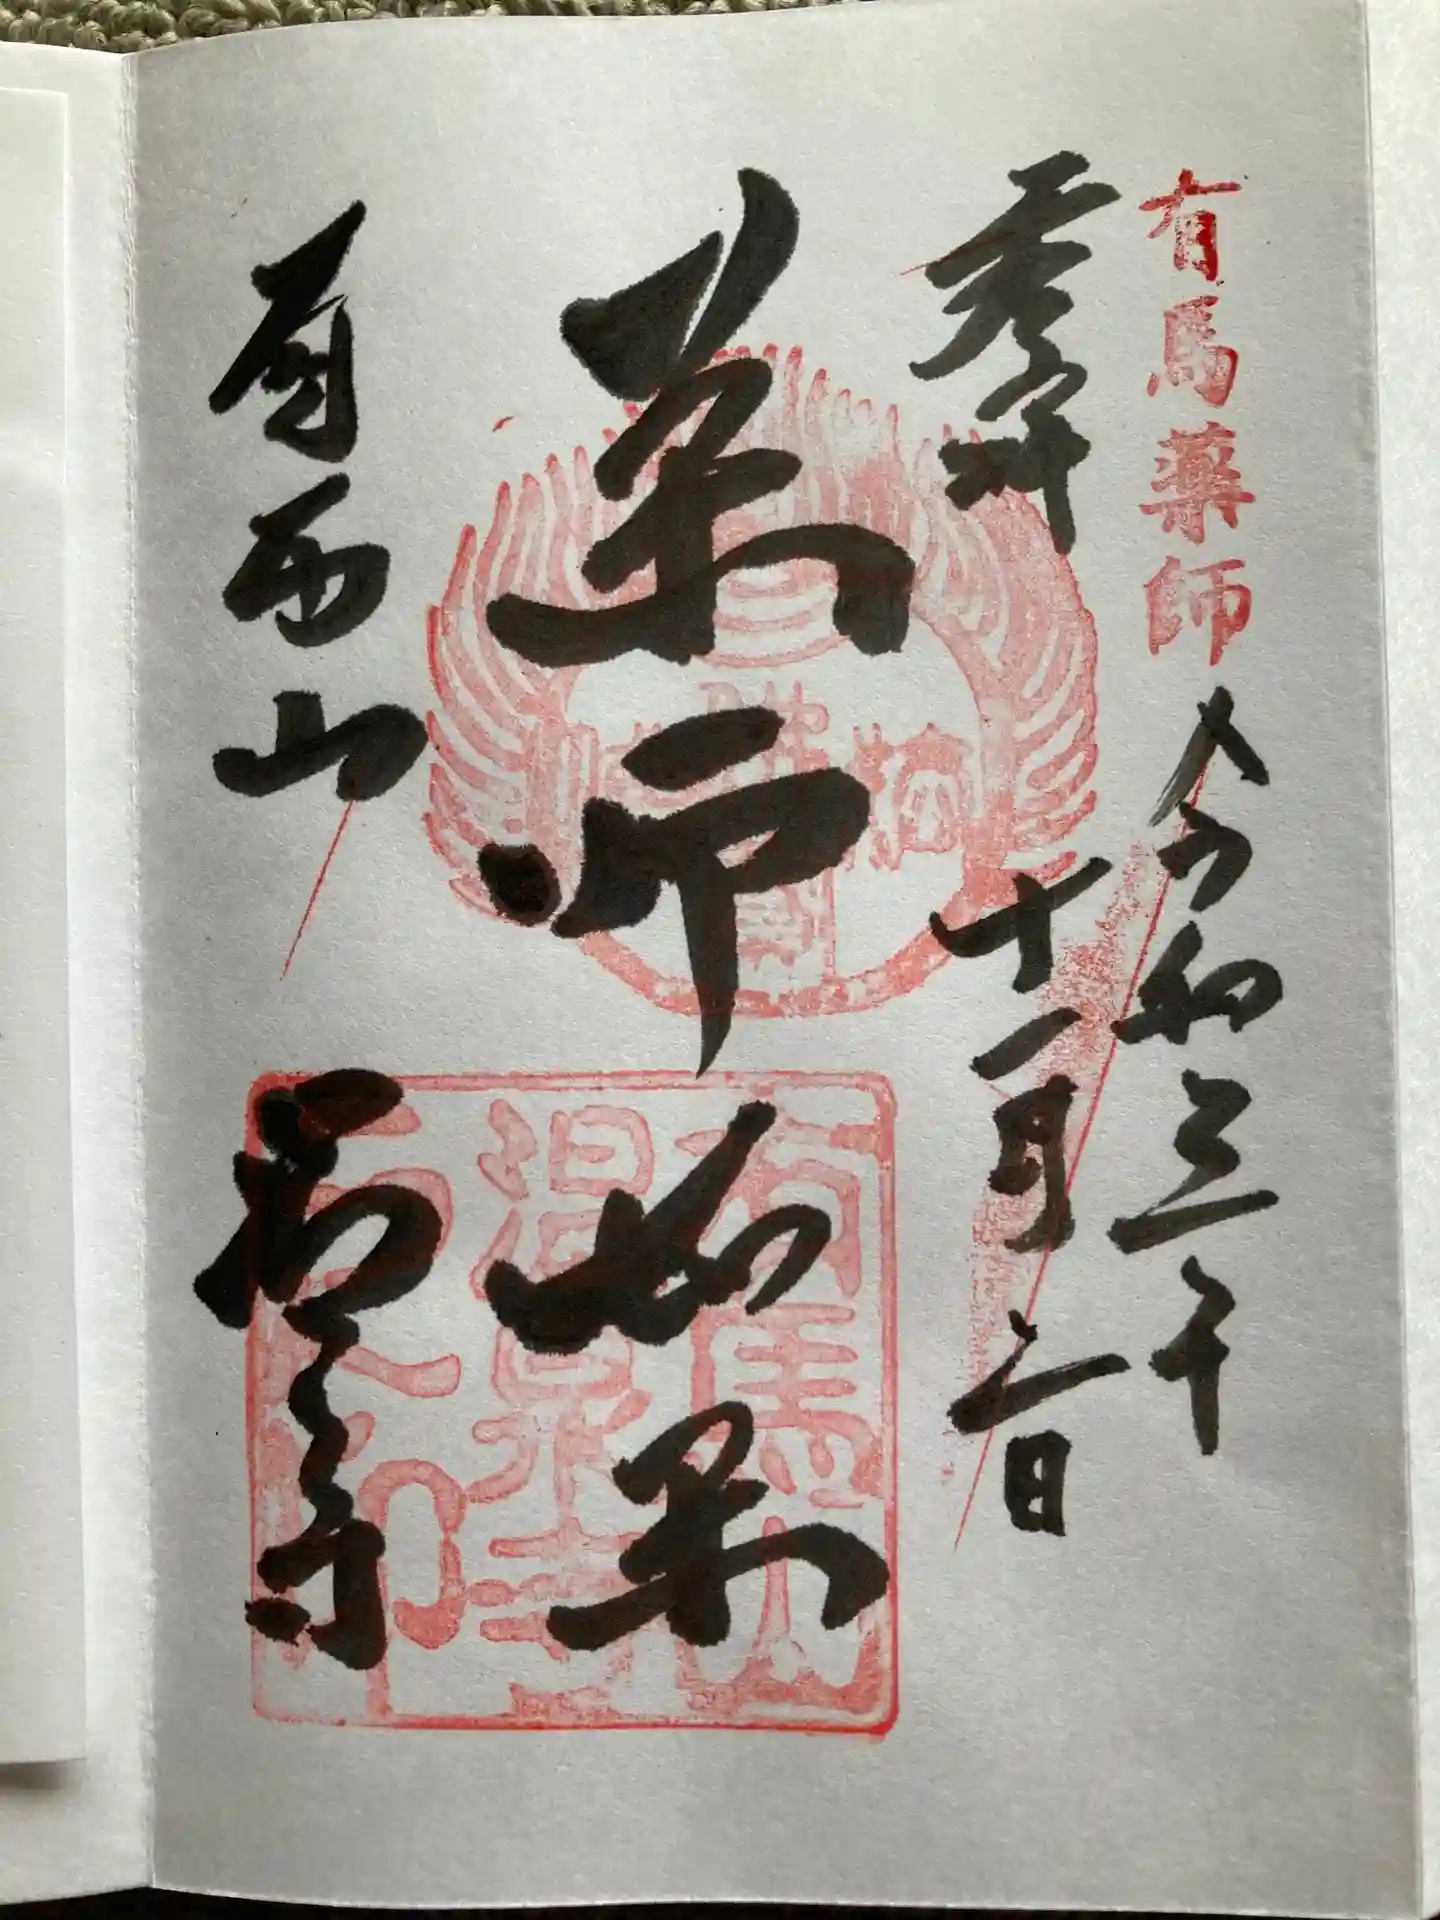 有馬薬師
令和三年
奉拝
十一月二日
薬師如来
有馬山
温泉寺
有馬山
温泉寺
之印